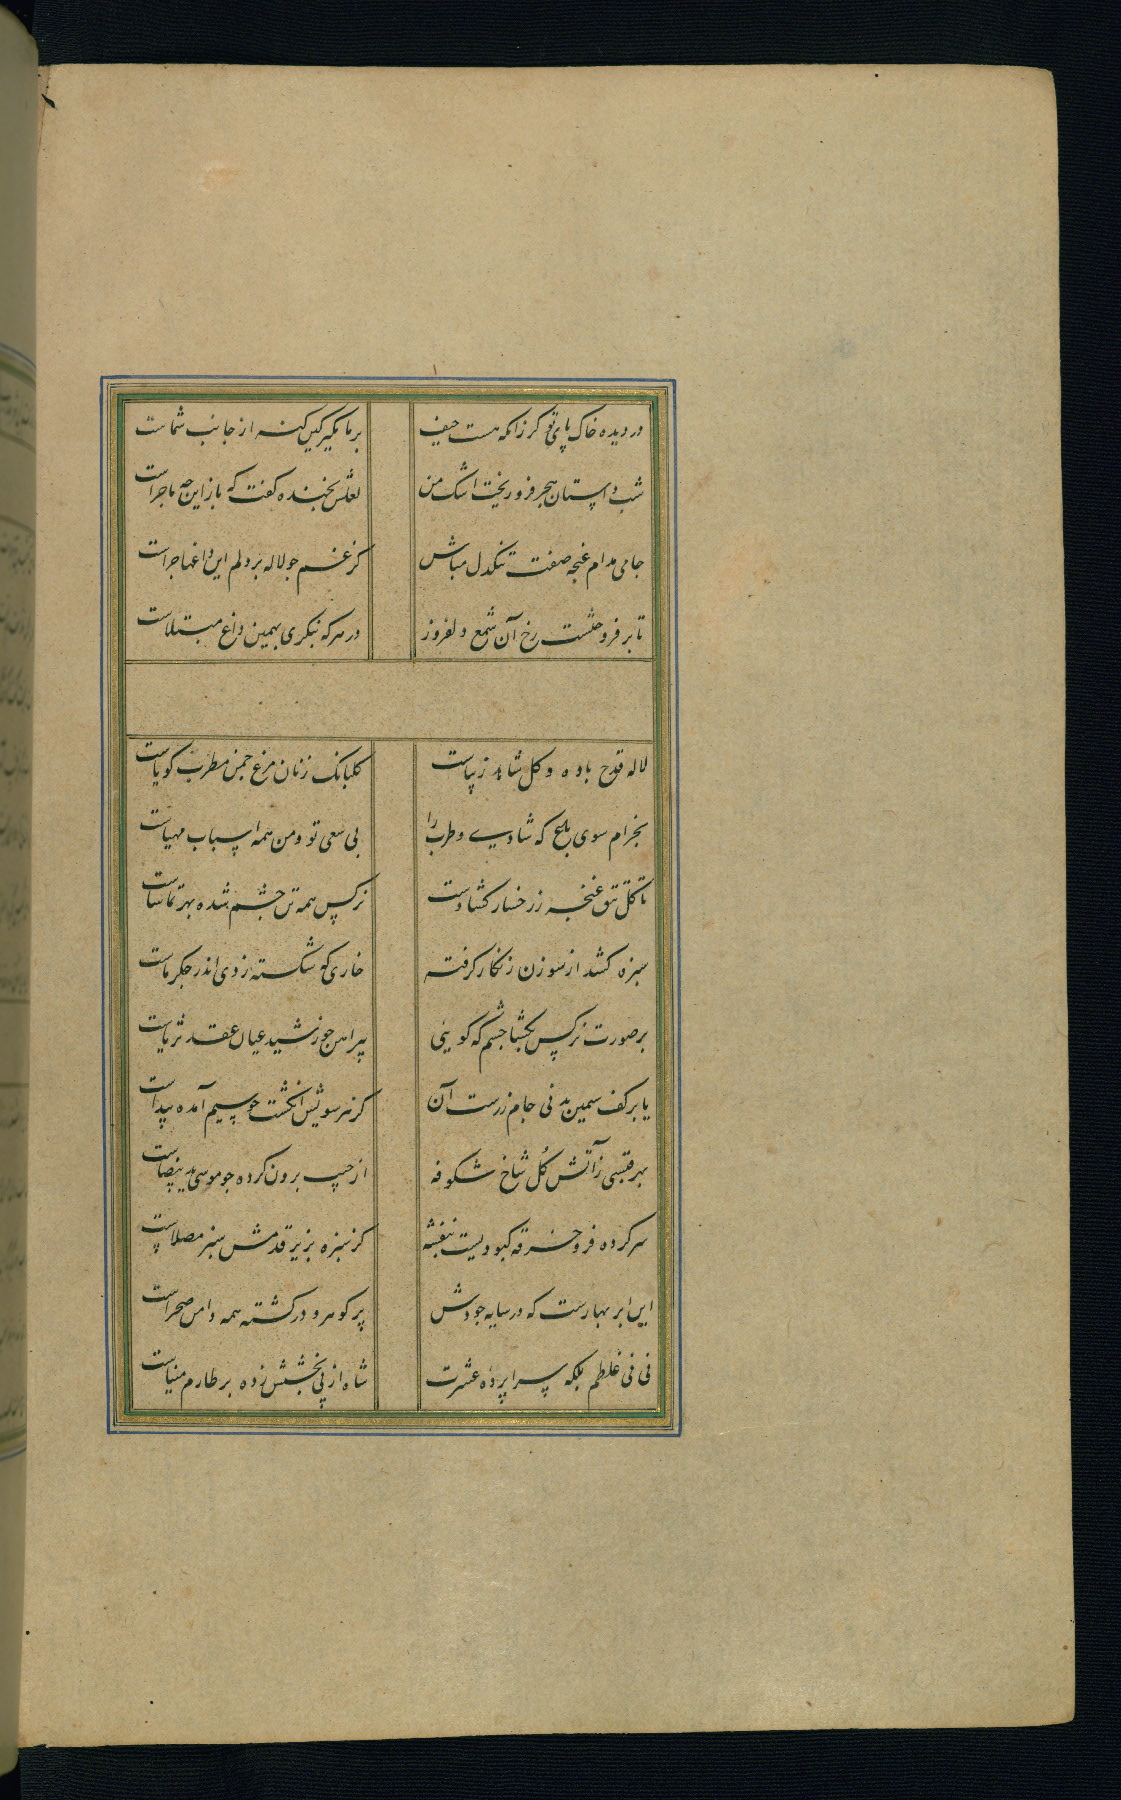 در دیده خاک پای تو کر زانکه هست حیف بر ما مکیر کین کنه از جانب شماست
شب داستان هجر فرو ریخت اشک من لعلش بخنده کفت که باز این چه ماجراست
جامی مدام غنچه صفت تنکدل مباش کز غم جو لاله بر دلم این داغها جراست
تا بر فروختست رخ آن شمع دلفروز در هر که بنکری بهمین داغ مبتلاست
لاله قدح باده و کل شاهد زیباست کلبانک زنان مرغ جمن مطرب کویاست
بخرام سوی باغ که شادی و طرب را بی سعی تو و من همه اسباب مهیاست
تا کل تتق غنچه ز رخسار کشادست نرکس همه تن جشم شده بهر تماشاست
سبزه کشد از سوزن زنکار کرفته خاری که شکسته ز دی اندر جکر ماست
بر صورت نرکس بکشا جشم که کویی پیرامن خورشید عیان عقد ثریاست
یا بر کف سیمین بدنی جام زرست آن کز هر سویش انکشت جو سیم آمده پیداست
بهر قبسی ز آتش کل شاخ شکوفه از جیب برون کرده جو موسی ید بیضاست
سر کرده فرو خرقه کبودیست بنفشه کز سبزه بزیر قدمش سبز مصلاست
این ابر بهارست که در سایه جودش پر کوهر و در کشته همه دامن صحراست
نی نی غلطم بلکه سراپرده عشرت شاه از پی بخشش زده بر طارم میناست